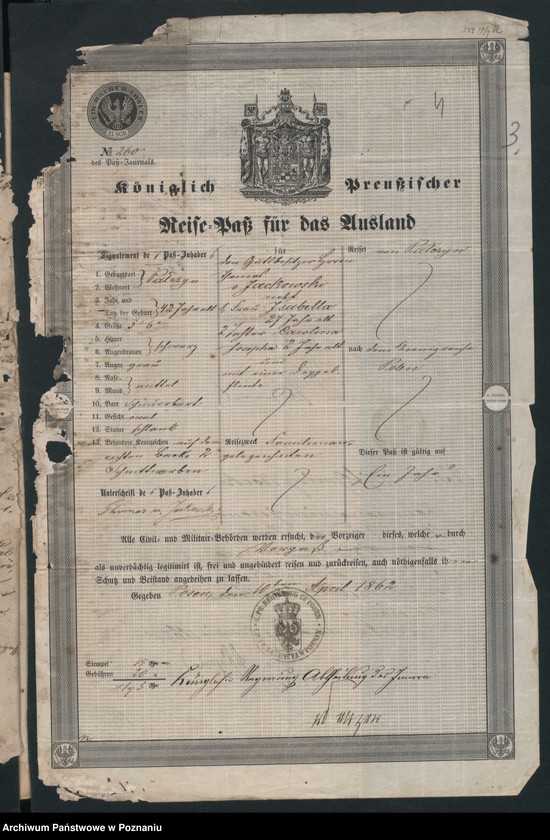 № 260
des Paß-Journals.
3.
Königlich Preußischer
Reise-Paß für das Ausland
Signalement des Paß-Inhabers
1. Geburtsort
2. Wohnort
3. Jahr und
Tag der Geburt 42 Jahr alt
4. Größe 5' 6"
5. Haare
6. Augenbrauen schwarz
7. Augen grau
8. Nase
9. Mund mittel
10. Bart Schnurrbart
11. Gesicht oval
12. Statur schlank
13. Besondere Kennzeichen auf dem
rechten Backe 2
Schnittnarben
Unterschrift des Paß-Inhabers
für
den Gutsbesitzer Herrn
Thomas
v Jackowski
nebst
Frau Isabella
27 Jahr alt
2 Töchter Carolina
Josepha 2 Jahr alt
und
mit einer Doppel-
flinte
Reisezweck Familienan-
gelegenheiten
Reiset von
nach dem Koenigreiche
Polen
Dieser Paß ist gültig auf
"Ein Jahr"
Alle Civil- und Militair-Behörden werden ersucht, den Vorzeiger dieses, welcher durch
als unverdächtig legitimirt ist, frei und ungehindert reisen und zurückreisen, auch nöthigenfalls ihm
Schutz und Beistand angedeihen zu lassen.
Gegeben Posen, den 10ten April 1862
Stempel 15
Gebühren 20
Königliche Regierung Abtheilung des Innern
Archiwum Państwowe w Poznaniu